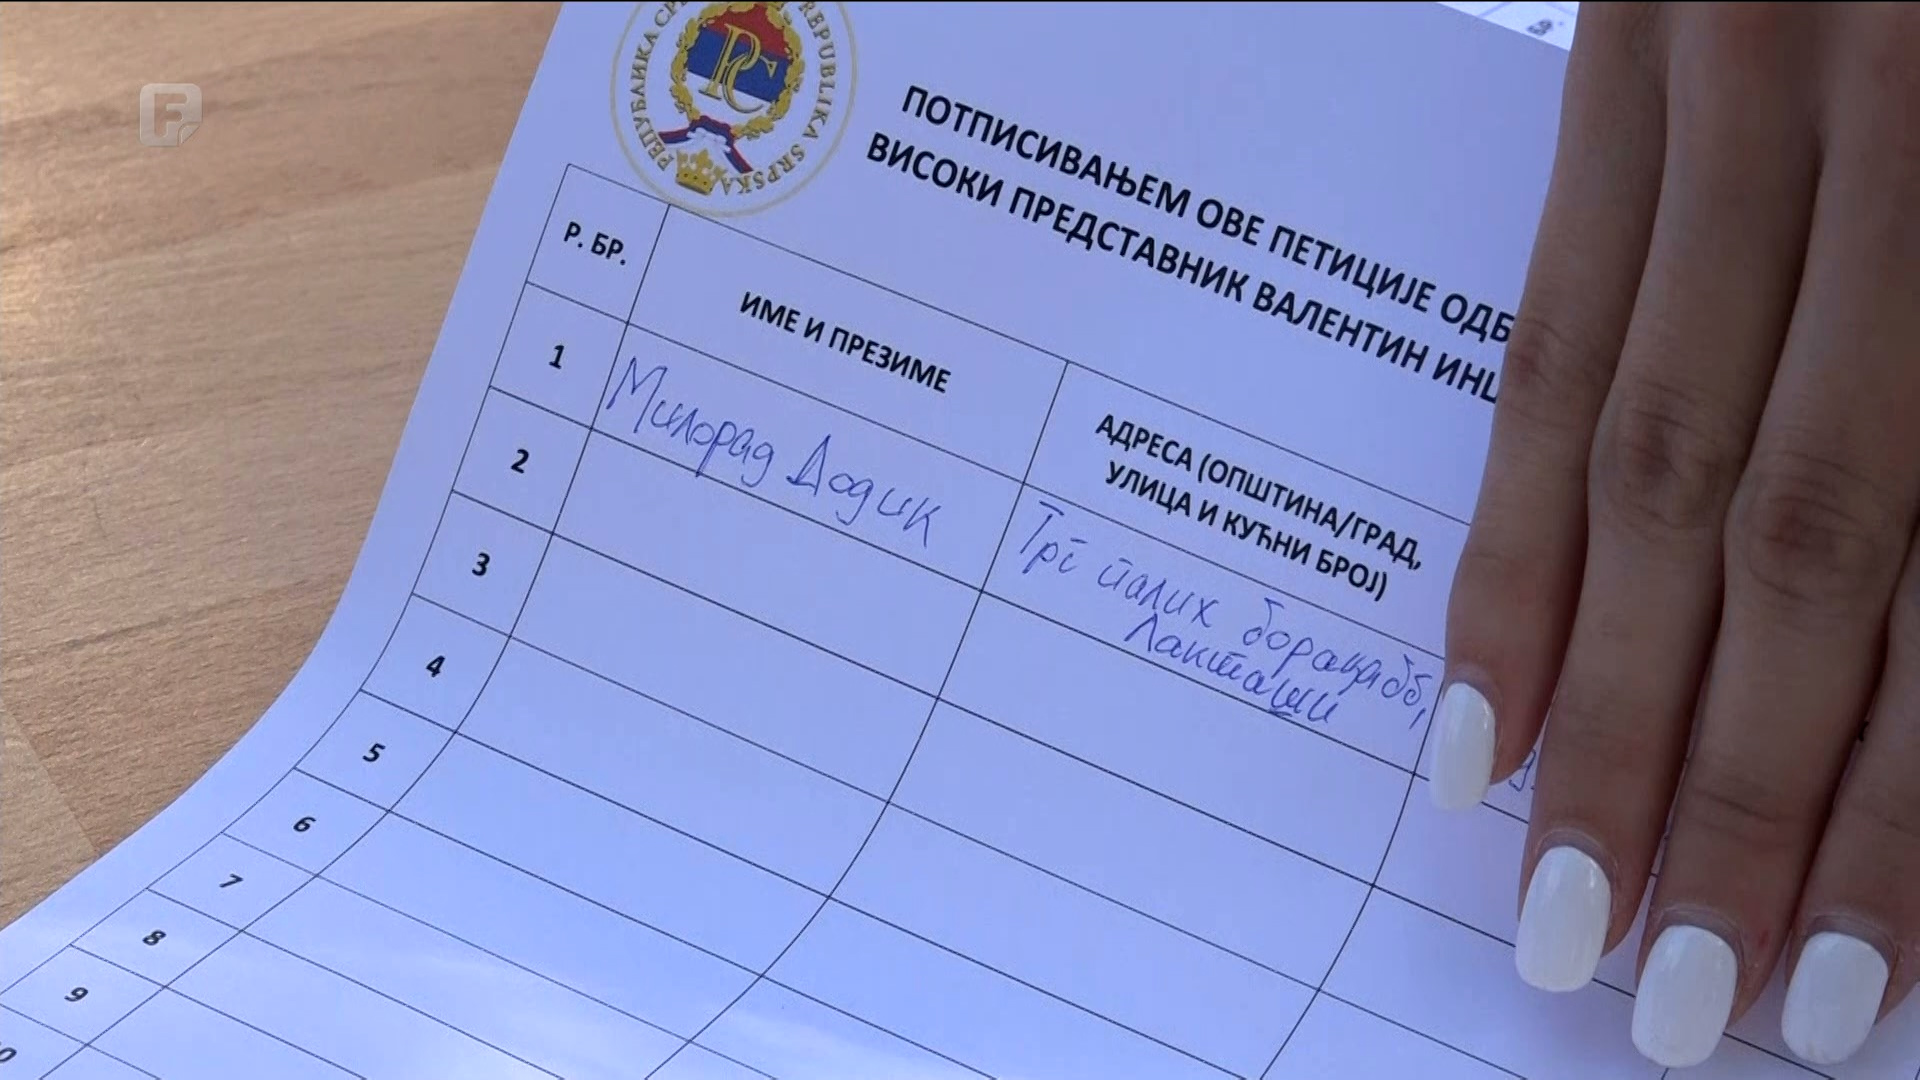 F
РЕПУБЛИКА СР
REPUBLIKA SRPSKA
РС
ПОТПИСИВАЊЕМ ОВЕ ПЕТИЦИЈЕ ОДБ
ВИСОКИ ПРЕДСТАВНИК ВАЛЕНТИН ИНЦ
Р. БР.
ИМЕ И ПРЕЗИМЕ
АДРЕСА (ОПШТИНА/ГРАД,
УЛИЦА И КУЋНИ БРОЈ)
1
Милорад Додик
Трг палих бораца бб,
Лакташи
2
3
4
5
6
7
8
9